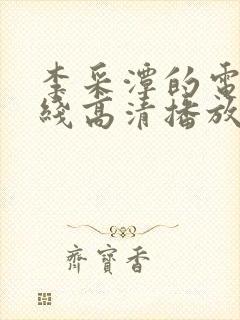 李采潭的電
綫高清播放
齊寶香